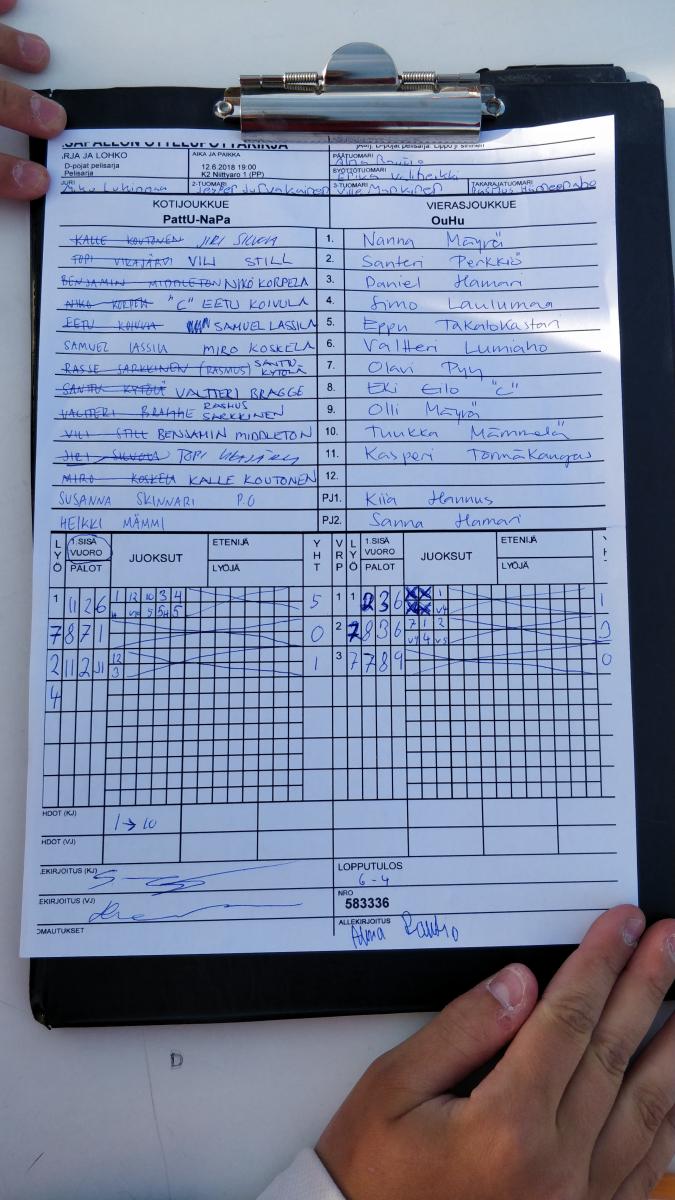 ARJA JA LOHKO AIKA JA PAIKKA PÄÄTUOMARI
D-pojat pelisarja 12.6.2018 19:00 SYÖTTÖTUOMARI
Pelisarja K2 Niittyaro 1 (PP) Erika
2-TUOMARI 3-TUOMARI Ville TAKARAJATUOMARI
KOTIJOUKKUE VIERASJOUKKUE
PattU-NaPa OuHu
KALLE KOUTONEN JIRI 1. Nanna Mäyrä
TOPI VILI STILL 2. Santeri Perkkiö
BENJAMIN MIDDLETON NIKO KORPELA 3. Daniel Hamari
NIKO KORPELA "C" EETU KOIVULA 4. Simo Laulumaa
EETU KOIVULA SAMUEL LASSILA 5. Eppu Takalokastari
SAMUEL LASSILA MIRO KOSKELA 6. Valtteri Lumiaho
RASSE SARKKINEN (RASMUS) SANTTU KYTÖLÄ 7. Olavi Pyy
SANTTU KYTÖLÄ VALTTERI BRAGGE 8. Eki Eilo "C"
VALTTERI BRAGGE RASMUS SARKKINEN 9. Olli Mäyrä
VILI STILL BENJAMIN MIDDLETON 10. Tuukka Mämmelä
JIRI TOPI 11. Kasperi Törmäkangas
MIRO KOSKELA KALLE KOUTONEN 12.
SUSANNA SKINNARI P.O PJ1. Kiia Hannus
HEIKKI MÄMMI PJ2. Sanna Hamari
LYÖ 1.SISÄ VUORO PALOT JUOKSUT ETENIJÄ LYÖJÄ YHT VRP LYÖ 1.SISÄ VUORO PALOT JUOKSUT ETENIJÄ LYÖJÄ
1 11 2 6 1 12 10 3 4 5 1 1 2 3 6 1 1
7 8 7 1 0 2 7 8 3 6 7 1 2 3
2 11 2 11 12 3 1 3 7 7 8 9 0
4
HDOT (KJ) 1 → 10
HDOT (VJ)
EKIRJOITUS (KJ) LOPPUTULOS
6 - 4
EKIRJOITUS (VJ) NRO
583336
OMAUTUKSET ALLEKIRJOITUS
Alma Rautio